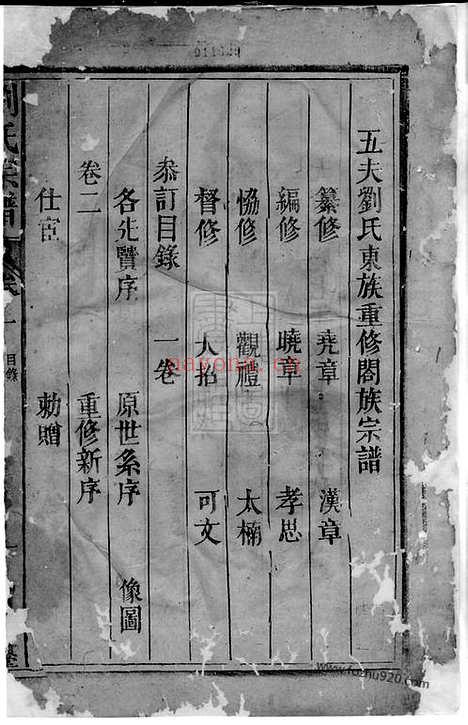 五夫劉氏東族重修閤族宗譜
纂修　堯章　漢章
編修　曉章　孝思
恊修　觀禮　太楠
督修　人招　可文
叅訂目錄　一卷
各先賢序　原世系序　像圖
卷二　重修新序
仕宦　勅贈
劉氏宗譜　目錄
nayona.cn
www.fozhu920.com